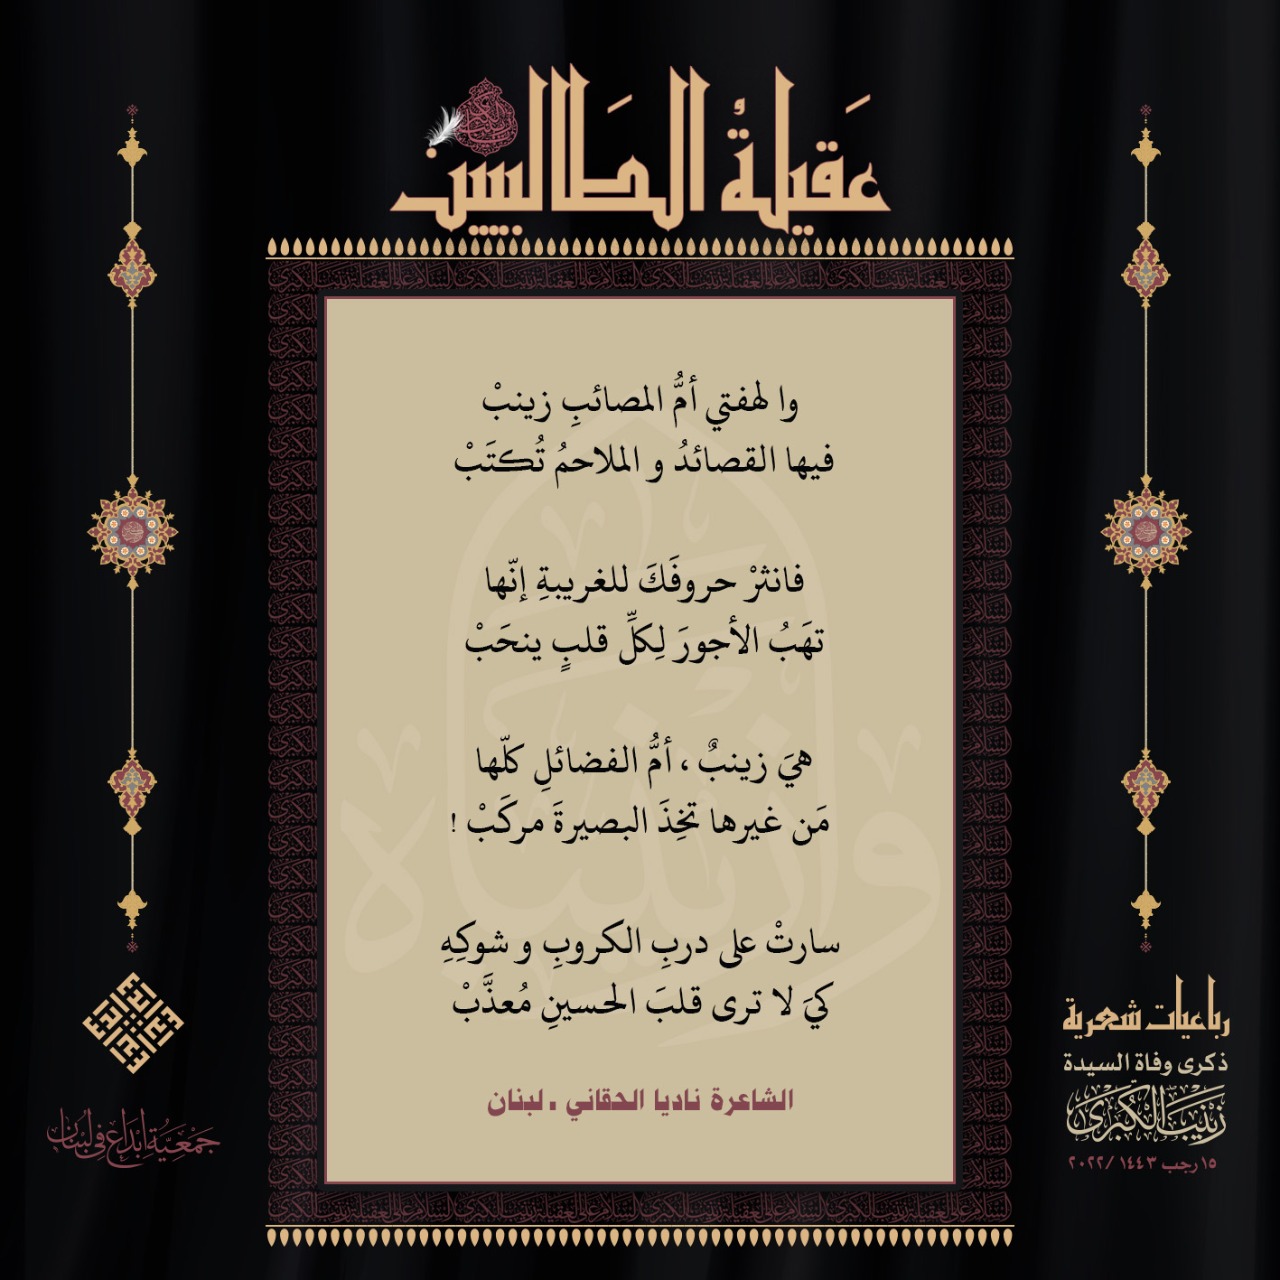 عَقيلةُ الطَالبيين
وا لهفتي أمُّ المصائبِ زينبْ
فيها القصائدُ و الملاحمُ تُكتَبْ
فانثرْ حروفَكَ للغريبةِ إنّها
تهَبُ الأجورَ لِكلِّ قلبٍ ينحَبْ
هيَ زينبٌ ، أمُّ الفضائلِ كلّها
مَن غيرها تخِذَ البصيرةَ مركَبْ !
سارتْ على دربِ الكروبِ و شوكِهِ
كيَ لا ترى قلبَ الحسينِ مُعذَّبْ
الشاعرة ناديا الحقاني . لبنان
رباعيات شعرية
ذكرى وفاة السيدة
زَيْنَبَ الْكُبْرَىٰ
١٥ رجب ١٤٤٣ /٢٠٢٢
جَمْعِيَّةُ إبْدَاع فِي لُبْنَان